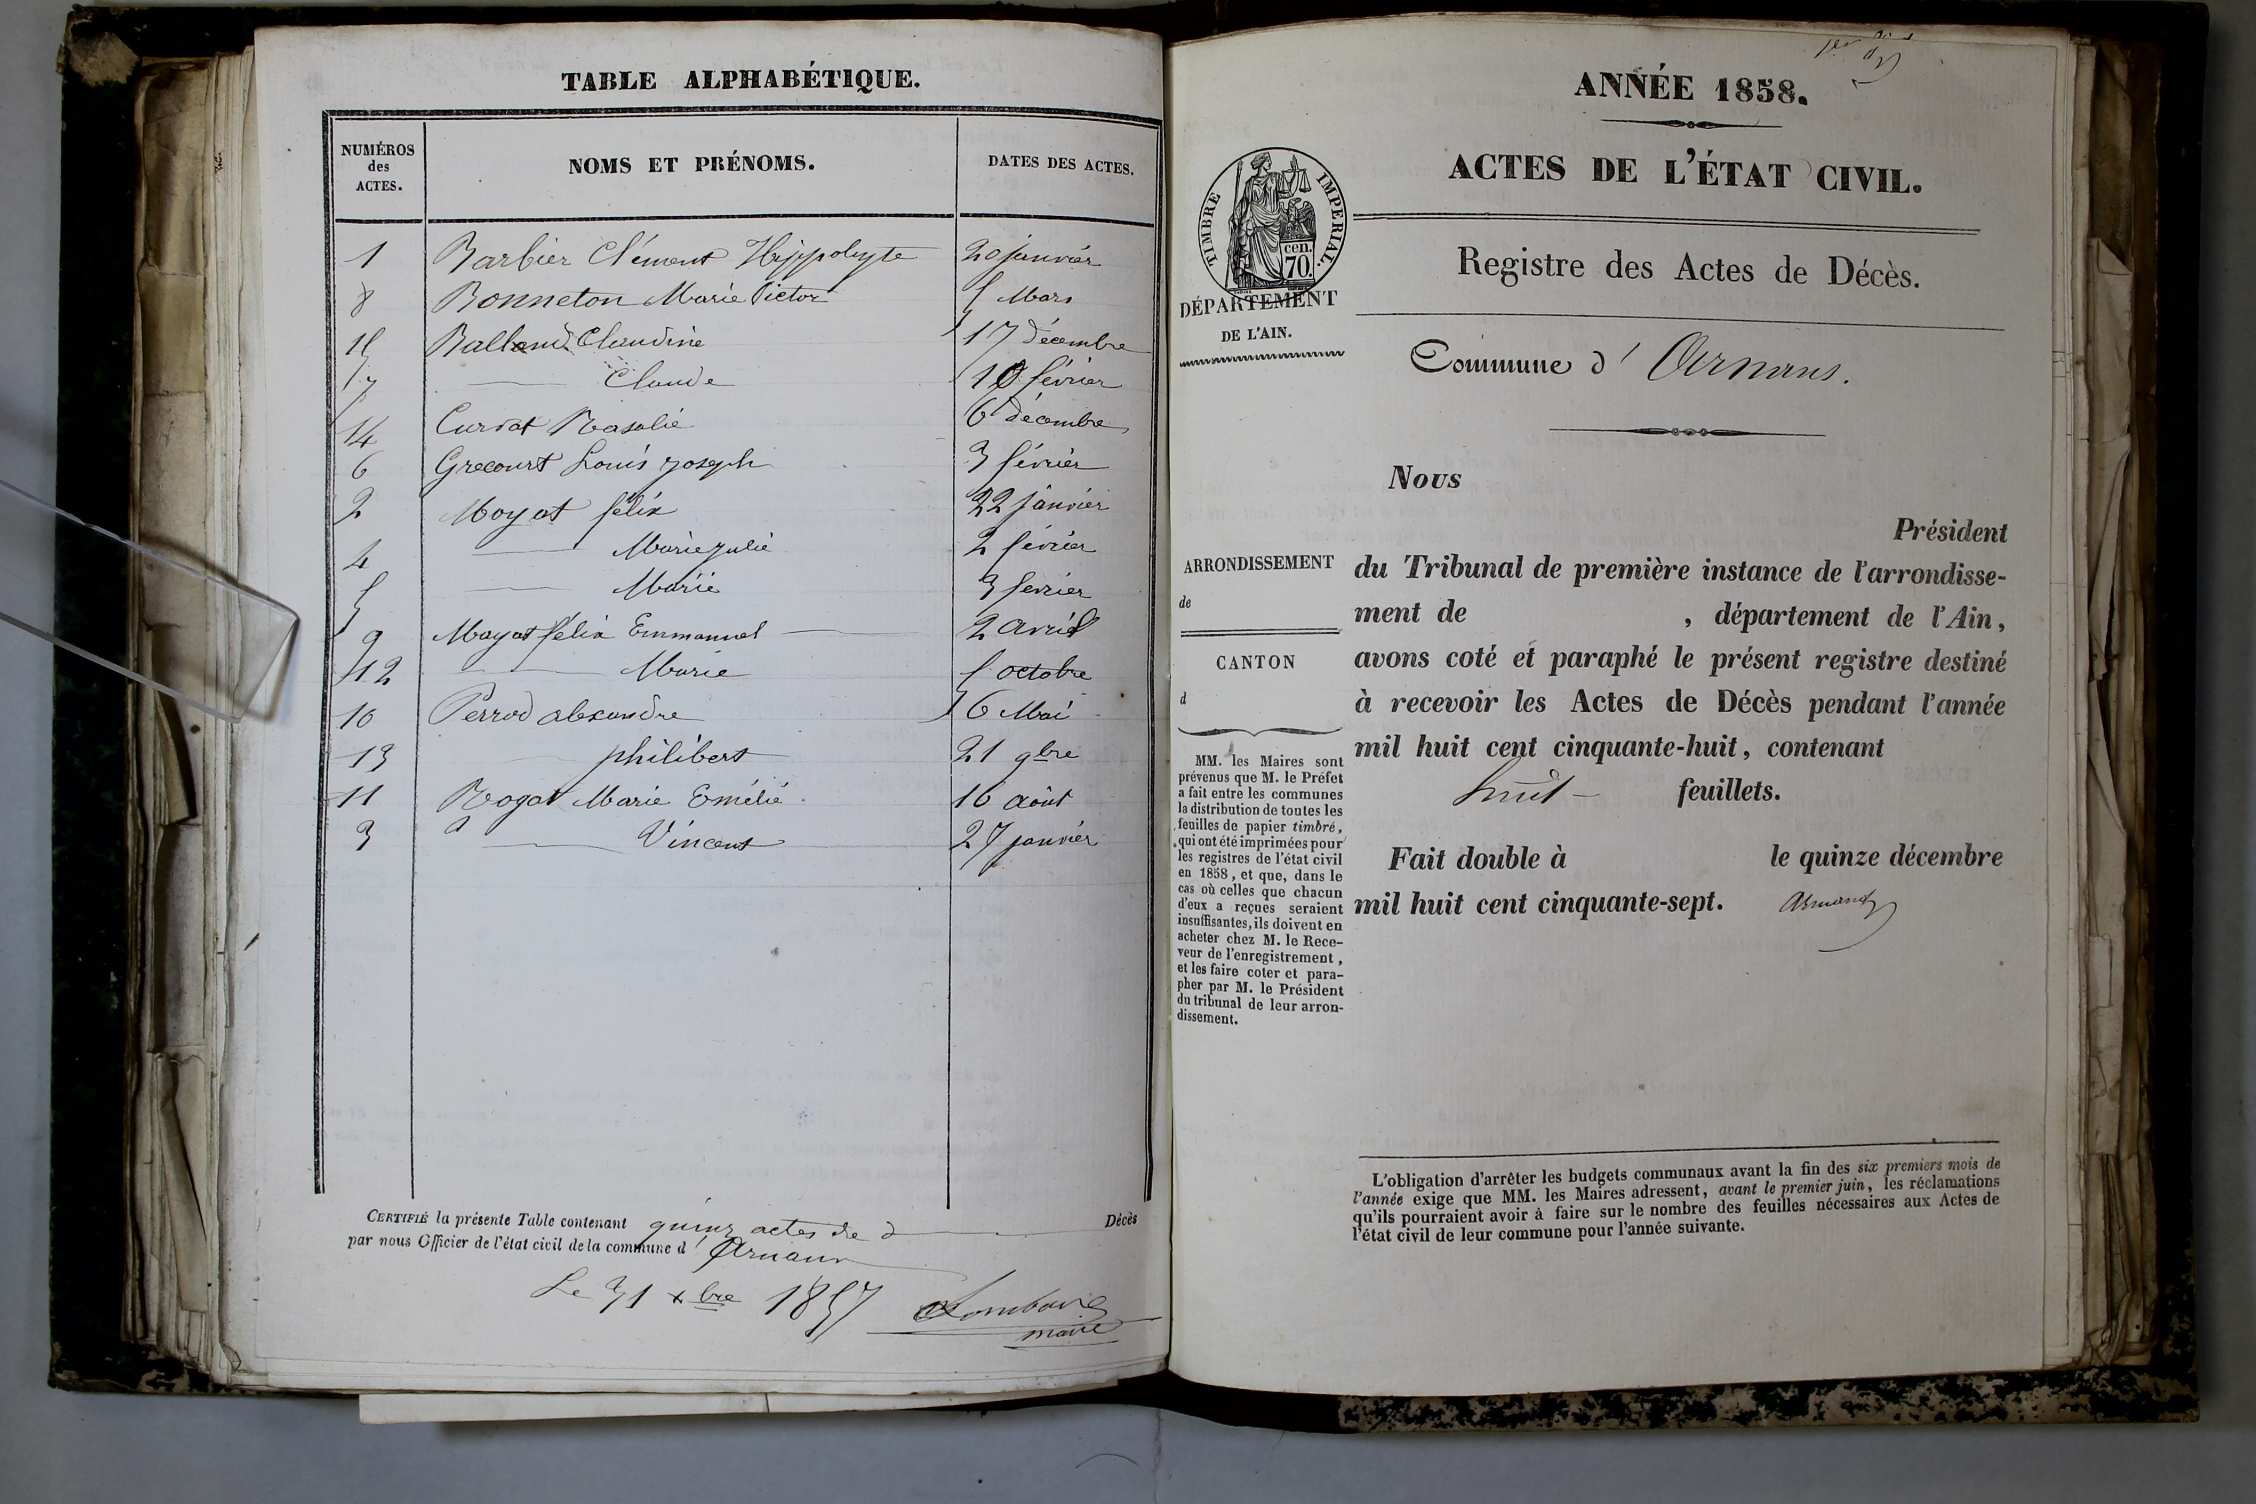 TABLE ALPHABÉTIQUE.
NUMÉROS des ACTES.
NOMS ET PRÉNOMS.
DATES DES ACTES.
1 Barbier Clément Hippolyte 20 janvier
8 Bonneton Marie Victor 5 Mars
15 Balland Claudine 17 décembre
7 — Claude 10 février
14 Curdat Rosalie 6 décembre
6 Grecourt Louis joseph 3 février
2 Moyat félix 22 janvier
4 — Marie julie 2 février
5 — Marie 3 fevrier
9 Moyat félix Emmanuel — 2 avril
12 — Marie 5 octobre
10 Perrod alexandre 6 Mai
13 philibert 21 9bre
11 Rogat Marie Emélie 16 août
3 — Vincent 27 janvier
CERTIFIÉ la présente Table contenant quinz actes de d — Décès
par nous Officier de l'état civil de la commune d' Arnans
Le 31 xbre 1857
maire
ANNÉE 1858.
ACTES DE L'ÉTAT CIVIL.
TIMBRE IMPÉRIAL.
cen. 70.
DÉPARTEMENT
DE L'AIN.
Registre des Actes de Décès.
Commune d' Arnans.
Nous
Président
du Tribunal de première instance de l'arrondisse-
ment de , département de l'Ain,
avons coté et paraphé le présent registre destiné
à recevoir les Actes de Décès pendant l'année
mil huit cent cinquante-huit, contenant
huit — feuillets.
Fait double à le quinze décembre
mil huit cent cinquante-sept. Armand
ARRONDISSEMENT
de
CANTON
d
MM. les Maires sont
prévenus que M. le Préfet
a fait entre les communes
la distribution de toutes les
feuilles de papier timbré,
qui ont été imprimées pour
les registres de l'état civil
en 1858, et que, dans le
cas où celles que chacun
d'eux a reçues seraient
insuffisantes, ils doivent en
acheter chez M. le Rece-
veur de l'enregistrement,
et les faire coter et para-
pher par M. le Président
du tribunal de leur arron-
dissement.
L'obligation d'arrêter les budgets communaux avant la fin des six premiers mois de
l'année exige que MM. les Maires adressent, avant le premier juin, les réclamations
qu'ils pourraient avoir à faire sur le nombre des feuilles nécessaires aux Actes de
l'état civil de leur commune pour l'année suivante.